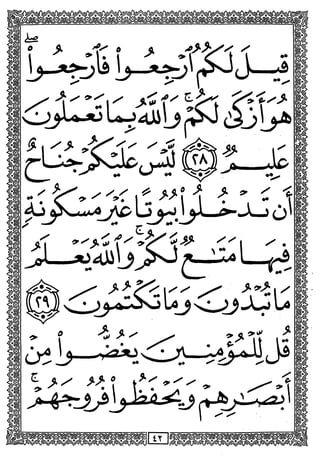 قِيلَ لَكُمُ ٱرۡجِعُواْ فَٱرۡجِعُواْۖ
هُوَ أَزۡكَىٰ لَكُمۡۚ وَٱللَّهُ بِمَا تَعۡمَلُونَ
عَلِيمٞ ٢٨ لَّيۡسَ عَلَيۡكُمۡ جُنَاحٌ
أَن تَدۡخُلُواْ بُيُوتًا غَيۡرَ مَسۡكُونَةٖ
فِيهَا مَتَٰعٞ لَّكُمۡۚ وَٱللَّهُ يَعۡلَمُ
مَا تُبۡدُونَ وَمَا تَكۡتُمُونَ ٢٩
قُل لِّلۡمُؤۡمِنِينَ يَغُضُّواْ مِنۡ
أَبۡصَٰرِهِمۡ وَيَحۡفَظُواْ فُرُوجَهُمۡۚ
٤٢